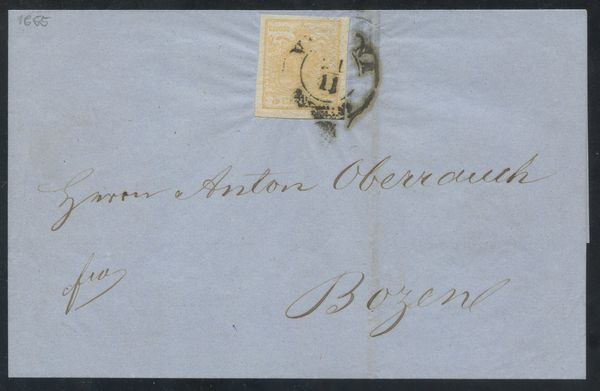 1855
11
Herrn Anton Oberrauch
fro
Bozen